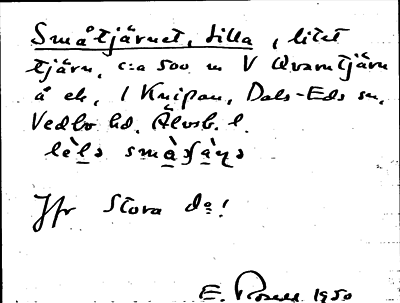 Småtjärnet, Lilla, litet
tjärn, c:a 500 m V Kvarntjärn
å ek. 1 Knipan, Dals-Eds sn,
Vedbo hd. Älvsb. l.
Jfr Stora d:o!
E. Rosell 1950